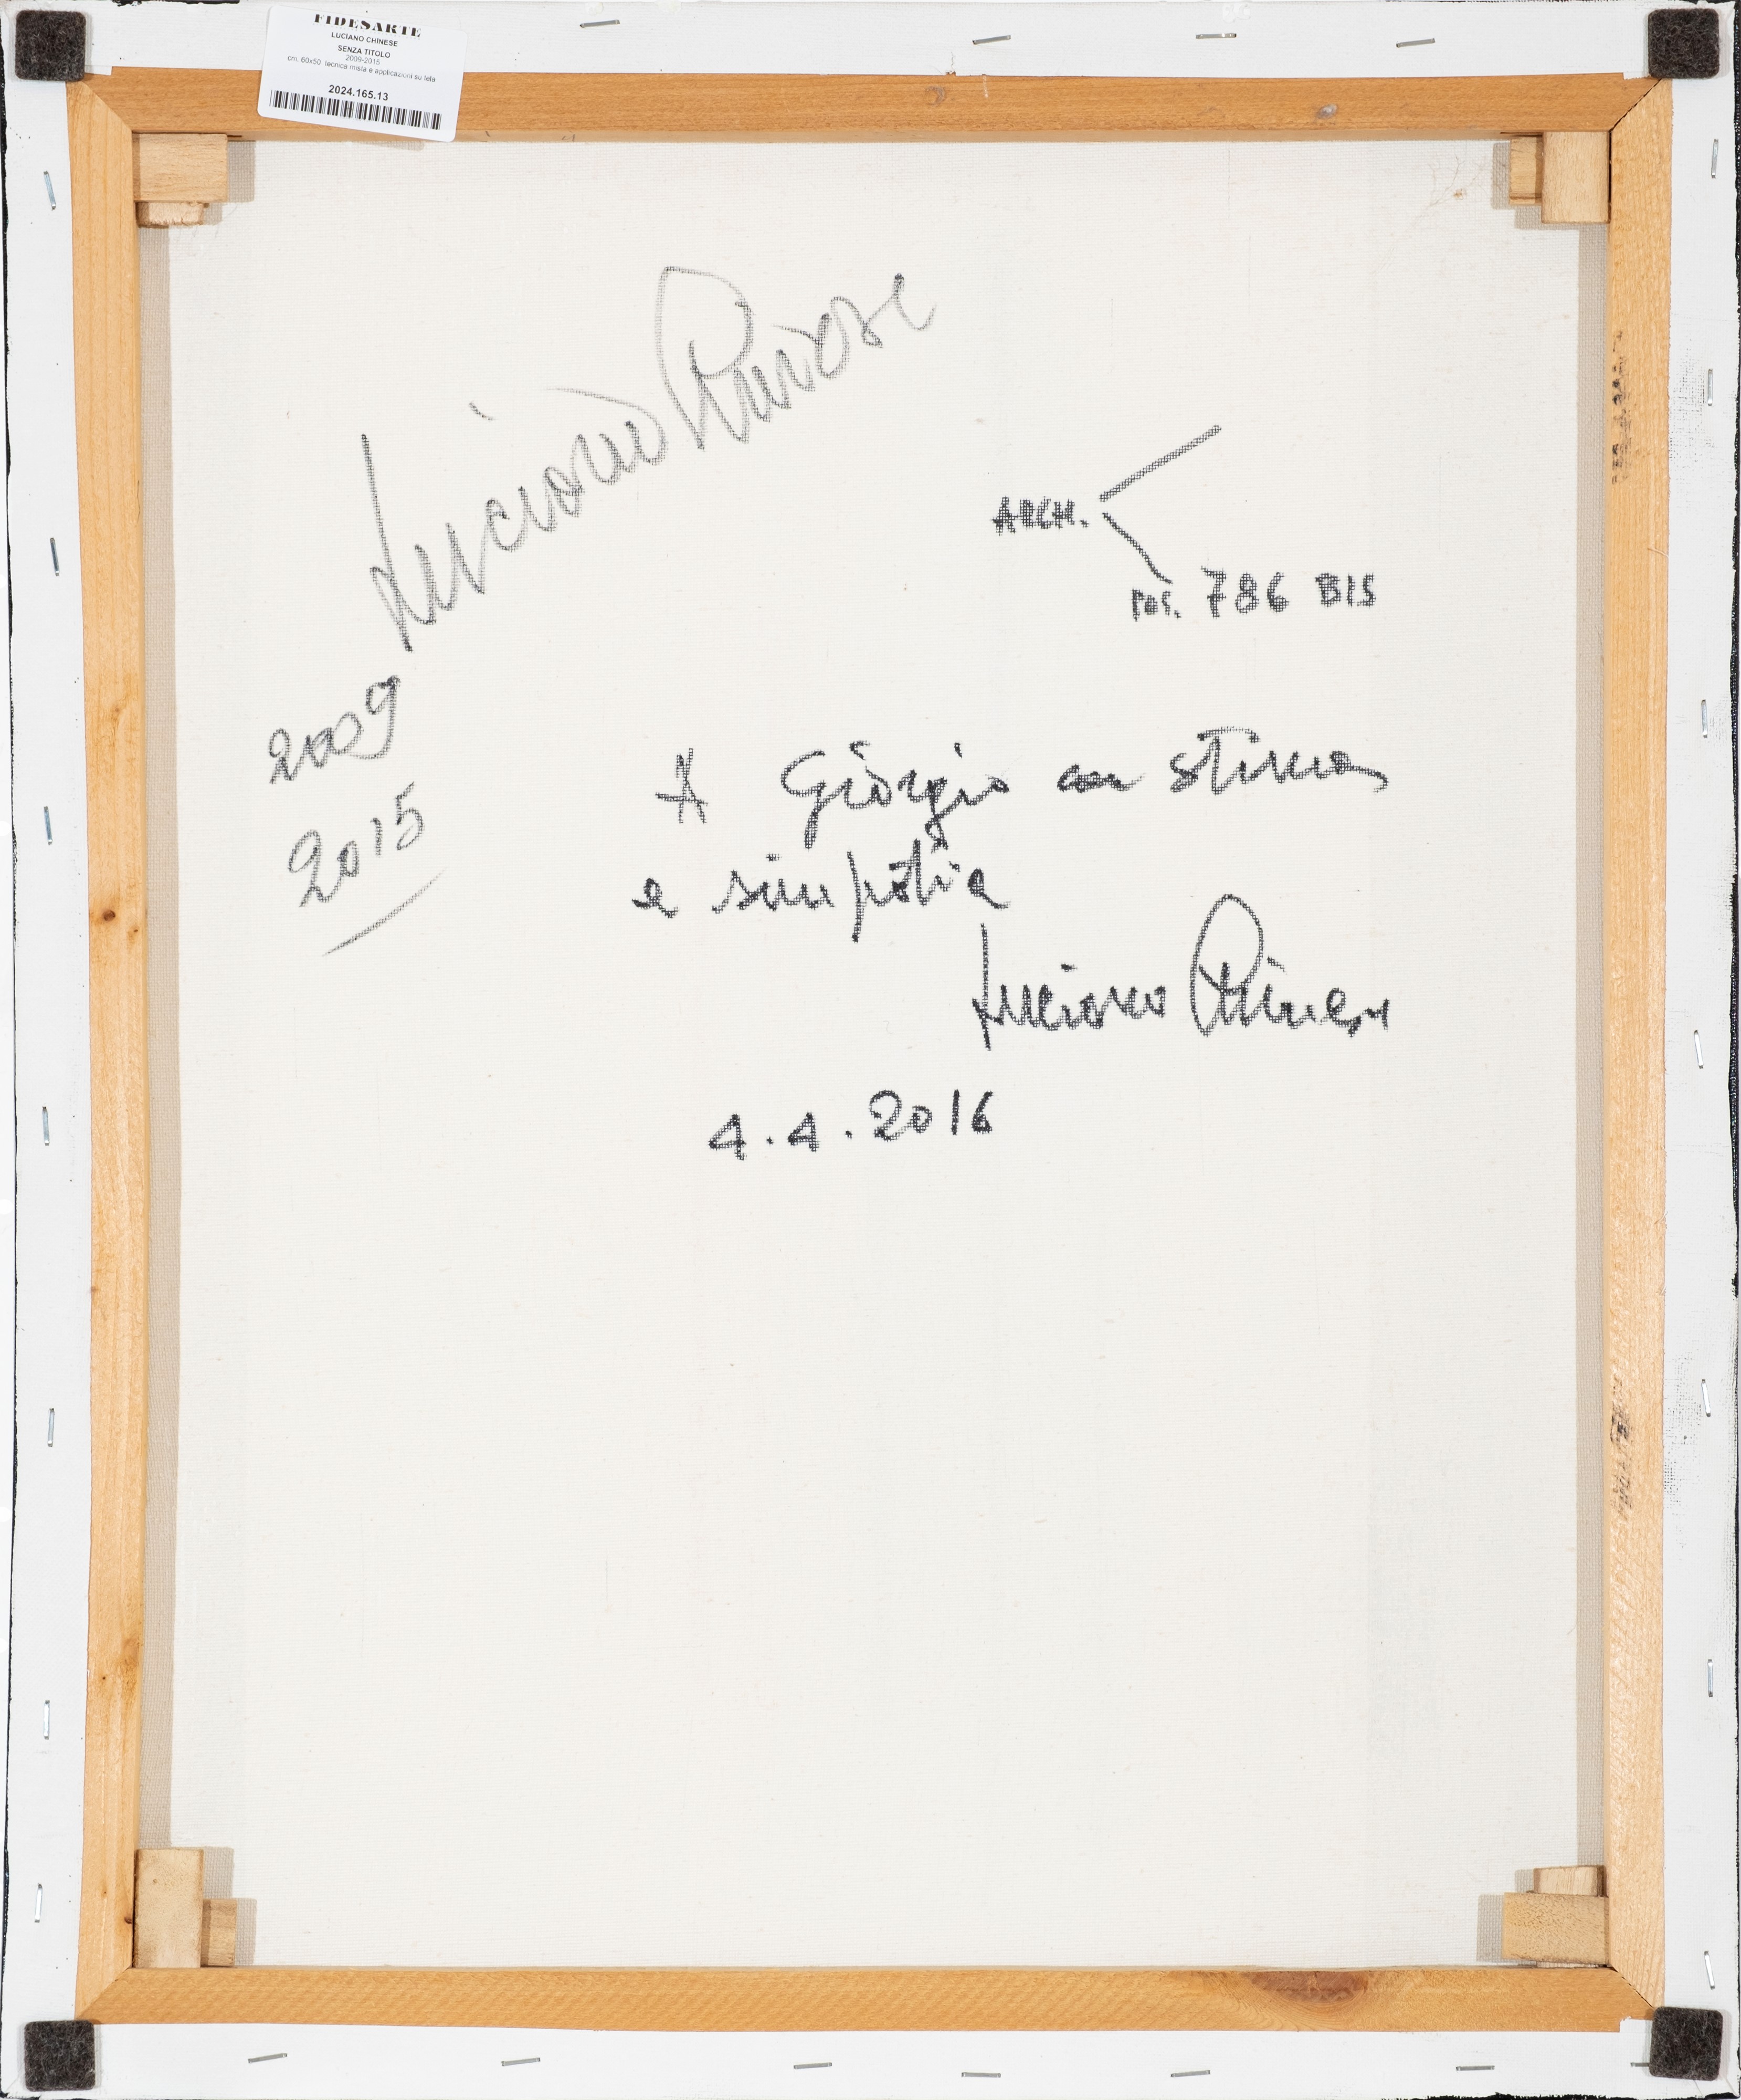 FIDESARTE
LUCIANO CHINESE
SENZA TITOLO
2009-2015
cm. 60x50 tecnica mista e applicazioni su tela
2024.165.13
Luciano Chinese
2009
2015
ARCH.
POS. 786 BIS
A Giorgio con stima
e simpatia
Luciano Chinese
4.4.2016